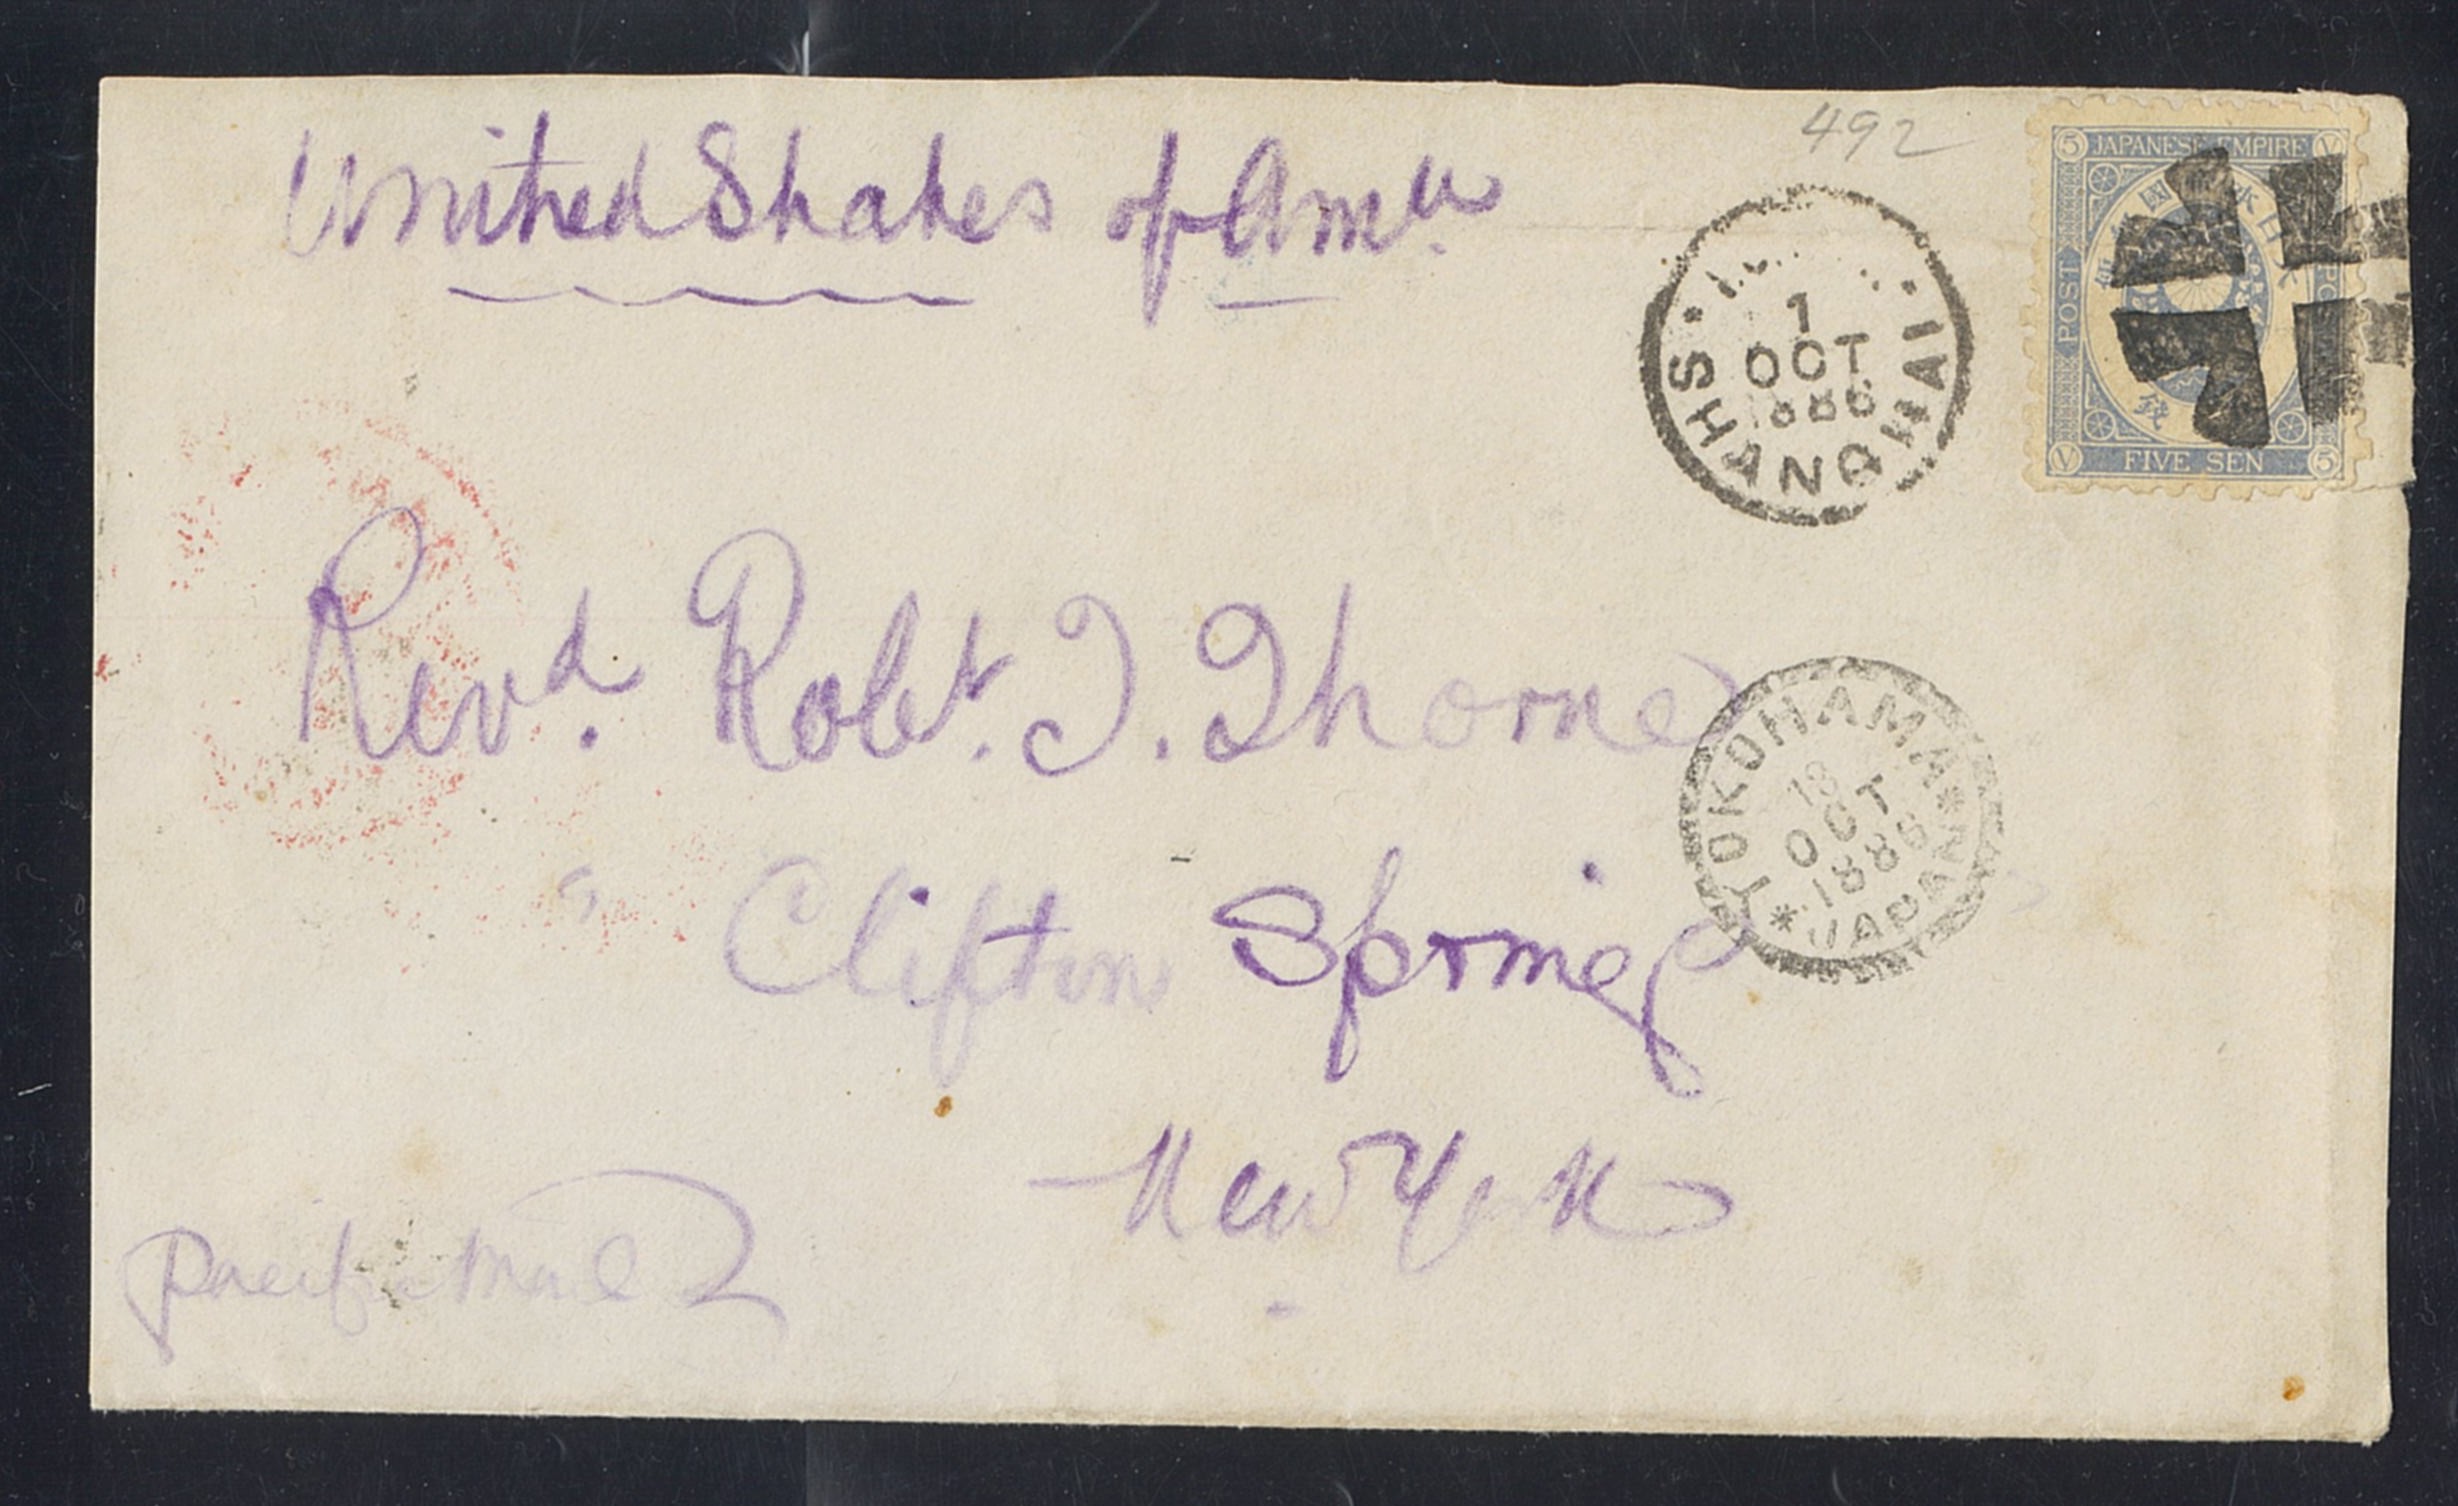 United States of Am^a
492
I.J.P.A.
1
OCT
1886
SHANGHAI
5 JAPANESE EMPIRE V
POST
V FIVE SEN 5
錢
Revd. Robt. T. Thorne
Clifton Springs
New York
YOKOHAMA
13
OCT
1886
JAPAN
Pacific Mail